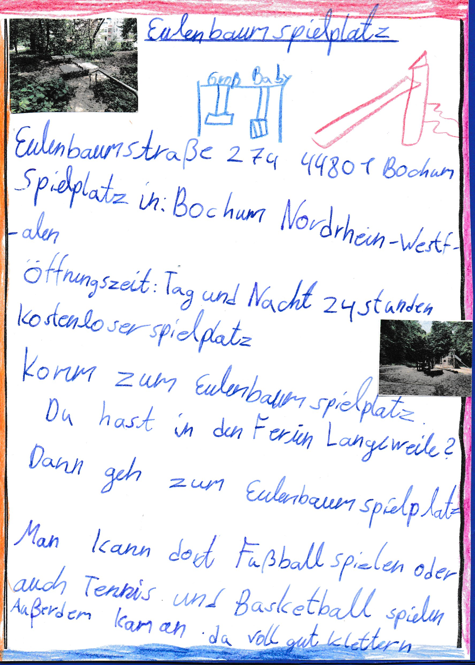 Eulenbaumspielplatz
Groß Baby
Eulenbaumstraße 274 44801 Bochum
Spielplatz in: Bochum Nordrhein-Westf-
-alen
Öffnungszeit: Tag und Nacht 24 stunden
kostenloser spielplatz
Komm zum Eulenbaumspielplatz.
Du hast in den Ferien Langeweile?
Dann geh zum Eulenbaumspielplatz
Man kann dort Fußball spielen oder
auch Tennis und Basketball spielen
Außerdem kaman da voll gut klettern